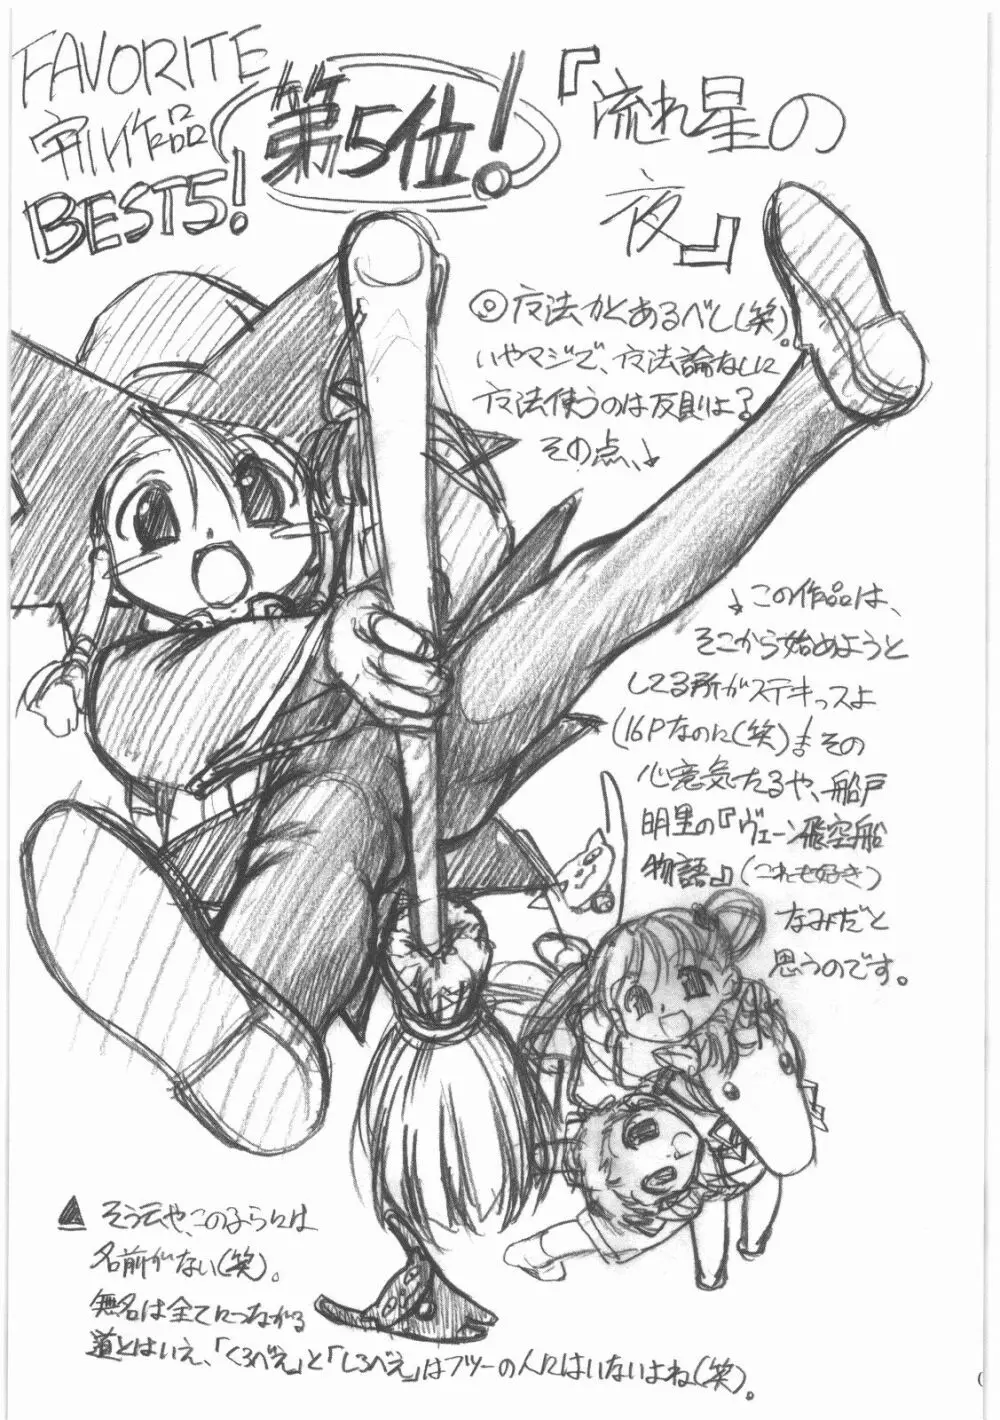 FAVORITE
宇河作品
BEST5!
第5位!
『流れ星の
夜』
◎魔法かくあるべし(笑)。
いやマジで、魔法論なしに
魔法使うのは反則よ?
その点、↓
↓この作品は、
そこから始めようと
してる所がステキっスよ
(16Pなのに(笑)
)まその
心意気たるや、船戸
明里の『ヴェーン飛空船
物語』(これも好き)
なみだと
思うのです。
▲そう云や、このふらには
名前がない(笑)。
無名は全てにつながる
道とはいえ、「くろべえ」と「しろべえ」はフツーの人にはいないよね(笑)。